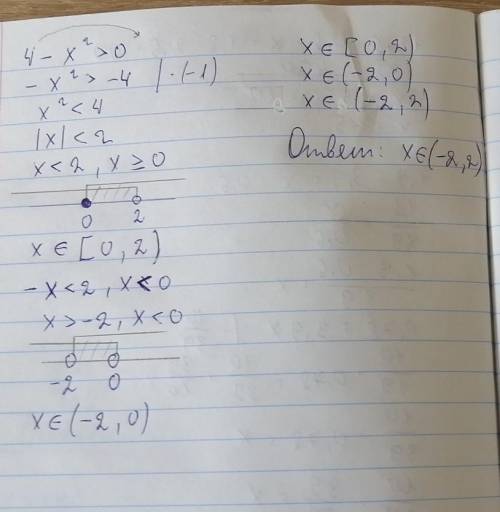 4 - x² > 0
- x² > -4 | · (-1)
x² < 4
|x| < 2
x < 2 , x ≥ 0
0 2
x ∈ [0, 2)
- x < 2 , x < 0
x > -2 , x < 0
-2 0
x ∈ (-2, 0)
x ∈ [0, 2)
x ∈ (-2, 0)
x ∈ (-2, 2)
Ответ: x ∈ (-2, 2)